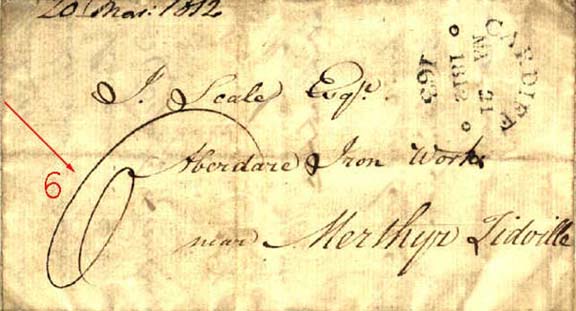 20 Mar: 1812
CARDIFF
MA 21
1812
163
J. Scale Esqr.
Aberdare Iron Works
6
near Merthyr Tidville
6